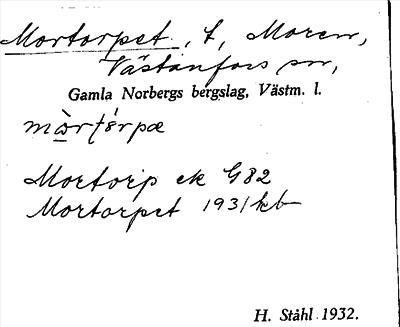 Mortorpet, t, Moren,
Västanfors sn,
Gamla Norbergs bergslag, Västm. l.
mòrtórpæ
Mortorp ek G82
Mortorpet 1931 kb
H. Ståhl 1932.